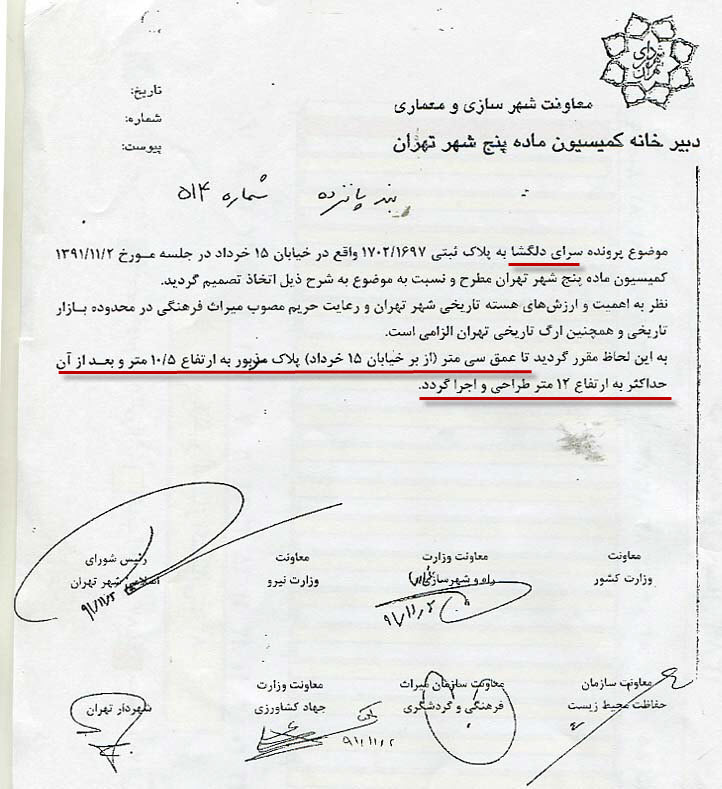 شهرداری تهران
معاونت شهر سازی و معماری
دبیر خانه کمیسیون ماده پنج شهر تهران
تاریخ:
شماره:
پیوست:
بند پانزده شماره ۵۱۴
موضوع پرونده سرای دلگشا به پلاک ثبتی ۱۷۰۲/۱۶۹۷ واقع در خیابان ۱۵ خرداد در جلسه مورخ ۱۳۹۱/۱۱/۲
کمیسیون ماده پنج شهر تهران مطرح و نسبت به موضوع به شرح ذیل اتخاذ تصمیم گردید.
نظر به اهمیت و ارزش‌های هسته تاریخی شهر تهران و رعایت حریم مصوب میراث فرهنگی در محدوده بازار
تاریخی و همچنین ارگ تاریخی تهران الزامی است.
به این لحاظ مقرر گردید تا عمق سی متر (از بر خیابان ۱۵ خرداد) پلاک مزبور به ارتفاع ۱۰/۵ متر و بعد از آن
حداکثر به ارتفاع ۱۲ متر طراحی و اجرا گردد.
معاونت وزارت کشور
معاونت وزارت راه و شهرسازی
معاونت وزارت نیرو
رئیس شورای اسلامی شهر تهران
۹۱/۱۱/۲
معاونت سازمان حفاظت محیط زیست
معاونت سازمان میراث فرهنگی و گردشگری
معاونت وزارت جهاد کشاورزی
۹۱/۱۱/۲
شهردار تهران